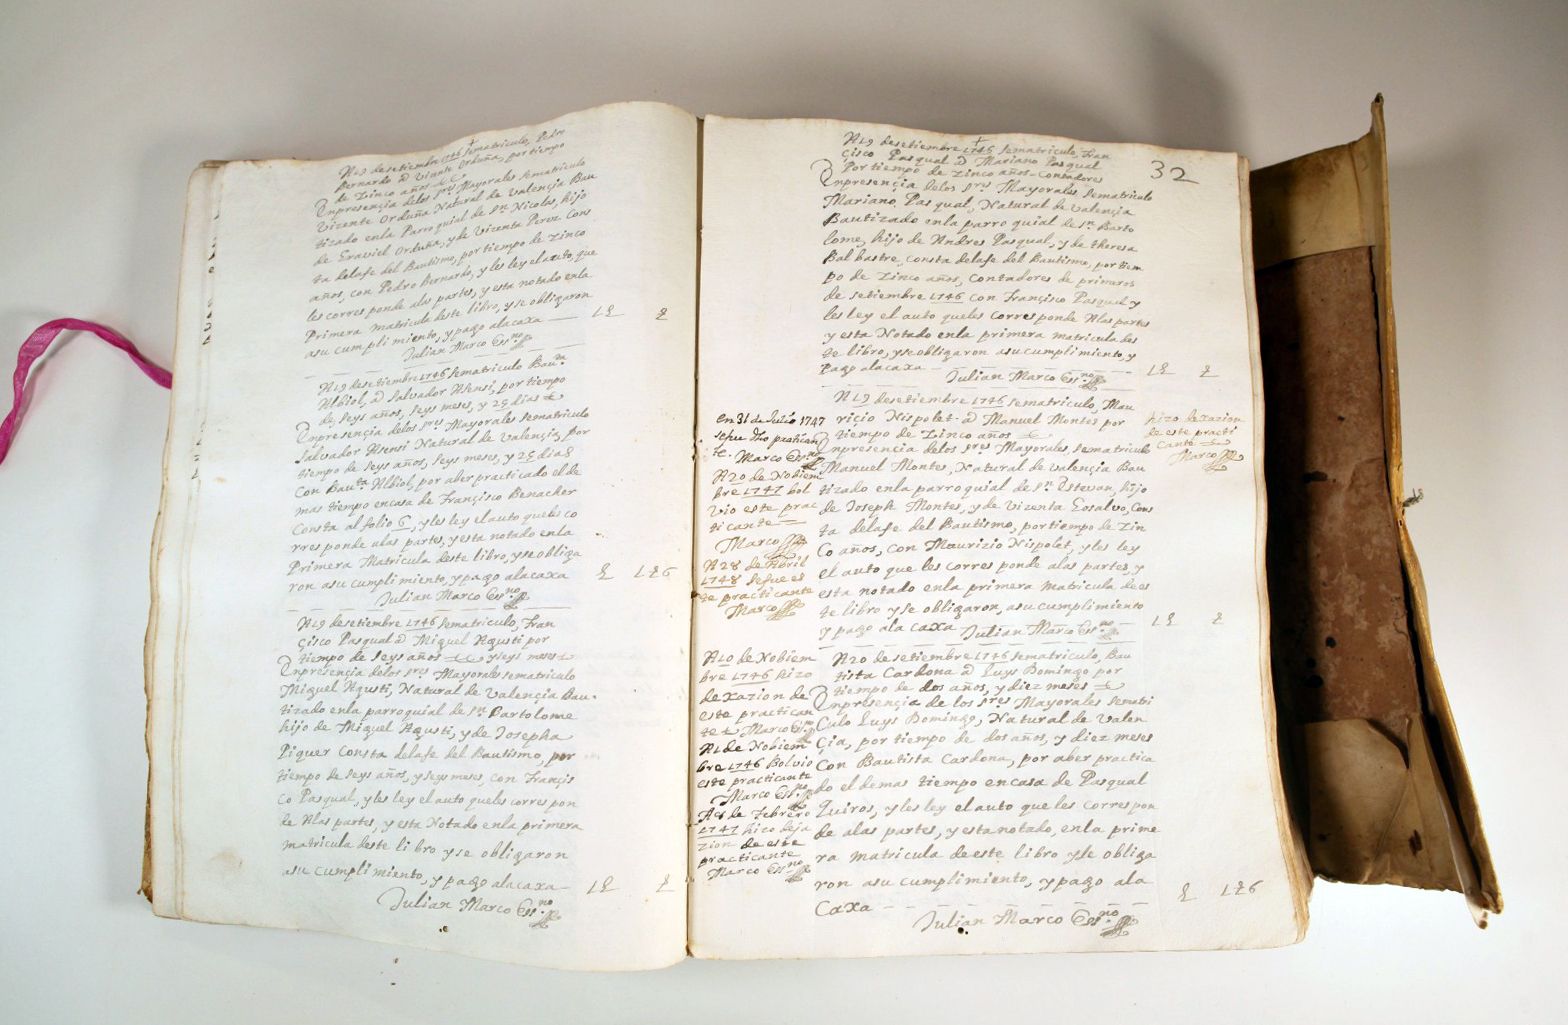 A 19 de setiembre 1746 se matriculo, Pedro
Bernardo â Visente Orduña, por tiempo
de Zinco años
En presençia de los s.res Mayorales se matriculo
Vizente Orduña Natural de Valençia Bau
tizado en la Parroquial de S.n Nicolas, hijo
de Graviel Orduña, y de Vizenta Perez Cons
ta de la fe del Bautismo, por tiempo de Zinco
años, con Pedro Bernardo, y les ley el auto, que
les corres ponde a las partes, y esta notado en la
Primera matricula deste libro, y se obligaron
a su cumplimiento, y pago a la caxa
Julian Marco Ess.no
A 19 de setiembre 1746 se matriculo Bau.ta
Albiol, â Salvador Asensi, por tiempo
de seys años, seys meses, y 25 dias
En presençia de los s.res Mayorales se matriculo
Salvador Asensi Natural de Valençia, por
tiempo de seys años, seys meses, y 25 dias
Con Bau.ta Albiol, por aber practicado el de
mas tiempo en casa de Françisco Benacher
Consta al folio 6, y les ley el auto que les co
rres ponde a las partes, y esta notado en la
Primera Matricula deste libro, y se obliga
ron a su cumplimiento, y pago a la caxa
Julian Marco Ess.no
A 19 de setiembre 1746 se matriculo, Fran
çisco Pasqual â Miguel Agusti por
tiempo de seys años y seys meses
En presençia de los s.res Mayorales se matriculo
Miguel Agusti, Natural de Valençia Bau
tizado en la parroquial de S.n Bartolome
hijo de Miguel Agusti, y de Josepha
Piquer Consta de la fe del Bautismo, por
tiempo de seys años, y seys meses, con Françis
co Pasqual, y les ley el auto que les corres pon
de A las partes, y esta Notado en la primera
matricula deste libro y se obligaron
a su cumplimiento, y pago a la caxa
Julian Marco Ess.no
32
A 19 de setiembre 1746 se matriculo, Fran
çisco Pasqual â Mariano Pasqual
Por tiempo de Zinco años Contadores
En presençia de los s.res Mayorales se matriculo
Mariano Pasqual, Natural de Valençia
Bautizado en la parro quial de S.n Barto
lome, hijo de Andres Pasqual, y de theresa
Balbastre, Consta de la fe del Bautismo, por tiem
po de Zinco años, Contadores de primeros
de setiembre 1746 con Françisco Pasqual y
les ley el auto que les Corres ponde A las partes
y esta Notado en la primera matricula des
te libro, y se obligaron a su cumplimiento, y
Pago a la caxa Julian Marco Ess.no
A 19 de setiembre 1746 se matriculo, Mau
riçio Nispolet â Manuel Montes por
tiempo de Zinco años
En presençia de los s.res Mayorales se matriculo
Manuel Montes, Natural de Valençia Bau
tizado en la parroquial de S.n Estevan, hijo
de Joseph Montes, y de Vizenta Gosalvo, Cons
ta de la fe del Bautismo, por tiempo de Zin
Co años, con Maurizio Nispolet, y les ley
el auto que les corres ponde a las partes y
esta notado en la primera matricula de es
te libro y se obligaron, a su cumplimiento
y pago a la caxa Julian Marco Ess.no
hizo dexazion
de este practi
cante
Marco
En 31 de Julio 1747
practican
te. Marco Ess.no
A 20 de Nobiem
bre 1747 bol
vio este prac
ticante
Marco
A 28 de Abril
1748 se fue es
te practicante
Marco
A 20 de setiembre 1746 se matriculo, Bau
tista Cardona â Luys Domingo por
tiempo de dos años, y diez meses
En presençia de los s.res Mayorales se matri
Culo Luys Domingo, Natural de Valen
Çia, por tiempo de dos años, y diez meses
Con Bautista Cardona, por aber practica
do el demas tiempo en casa de Pasqual
Quiros, y les ley el auto que les Corres pon
de a las partes, y esta notado, en la prime
ra matricula de este libro y se obliga
ron a su cumplimiento, y pago a la
Caxa
Julian Marco Ess.no
A 10 de Nobiem
bre 1746 hizo
dexazion de
este practican
te Marco Ess.no
Nobiem
bre 1746 Bolvio
este practicante
Marco Ess.no
de Febrero
1747 hizo deja
zion de este
practicante
Marco Ess.no